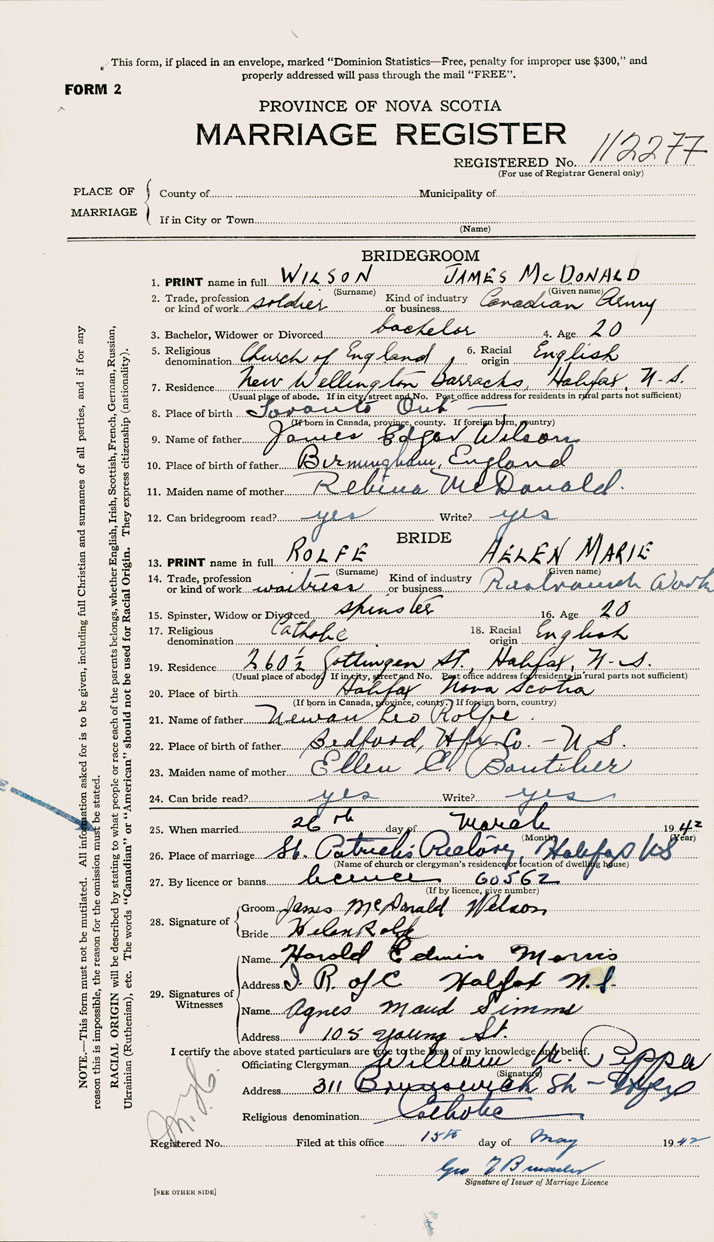 This form, if placed in an envelope, marked "Dominion Statistics—Free, penalty for improper use $300," and
properly addressed will pass through the mail "FREE".
FORM 2
PROVINCE OF NOVA SCOTIA
MARRIAGE REGISTER
REGISTERED No. 112277
(For use of Registrar General only)
PLACE OF MARRIAGE
County of Municipality of
If in City or Town
(Name)
BRIDEGROOM
1. PRINT name in full WILSON JAMES McDONALD
(Surname) (Given name)
2. Trade, profession or kind of work soldier Kind of industry or business Canadian Army
3. Bachelor, Widower or Divorced bachelor 4. Age 20
5. Religious denomination Church of England 6. Racial origin English
7. Residence New Wellington Barracks, Halifax, N.S.
(Usual place of abode. If in city, street and No. Post office address for residents in rural parts not sufficient)
8. Place of birth Toronto Ont
(If born in Canada, province, county. If foreign born, country)
9. Name of father James Edgar Wilson
10. Place of birth of father Birmingham, England
11. Maiden name of mother Rebina McDonald.
12. Can bridegroom read? yes Write? yes
BRIDE
13. PRINT name in full ROLFE HELEN MARIE
(Surname) (Given name)
14. Trade, profession or kind of work waitress Kind of industry or business Work
15. Spinster, Widow or Divorced spinster 16. Age 20
17. Religious denomination Catholic 18. Racial origin English
19. Residence 260½ Gottingen St, Halifax, N.S.
(Usual place of abode. If in city, street and No. Post office address for residents in rural parts not sufficient)
20. Place of birth Halifax Nova Scotia
(If born in Canada, province, county. If foreign born, country)
21. Name of father Leo Rolfe.
22. Place of birth of father Bedford, Hfx Co. - N.S.
23. Maiden name of mother Ellen E. Boutilier
24. Can bride read? yes Write? yes
25. When married 26th day of March 1942
(Month) (Year)
26. Place of marriage St. Patrick's Rectory, Halifax NS
(Name of church or clergyman's residence or location of dwelling house)
27. By licence or banns licence 60562
(If by licence, give number)
28. Signature of
Groom James McDonald Wilson
Bride Helen Rolfe
29. Signatures of Witnesses
Name Harold Edwin Morris
Address R. of C Halifax N.S.
Name Agnes Maud Simms
Address 105 Young St.
I certify the above stated particulars are true to the best of my knowledge and belief.
Officiating Clergyman William
(Signature)
Address 311 Brunswick St - Hfx
Religious denomination Catholic
M.H.
Registered No. Filed at this office 15th day of May 1942
Geo
Signature of Issuer of Marriage Licence
[SEE OTHER SIDE]
NOTE.—This form must not be mutilated. All information asked for is to be given, including full Christian and surnames of all parties, and if for any
reason this is impossible, the reason for the omission must be stated.
RACIAL ORIGIN will be described by stating to what people or race each of the parents belongs, whether English, Irish, Scottish, French, German, Russian,
Ukrainian (Ruthenian), etc. The words "Canadian" or "American" should not be used for Racial Origin. They express citizenship (nationality).